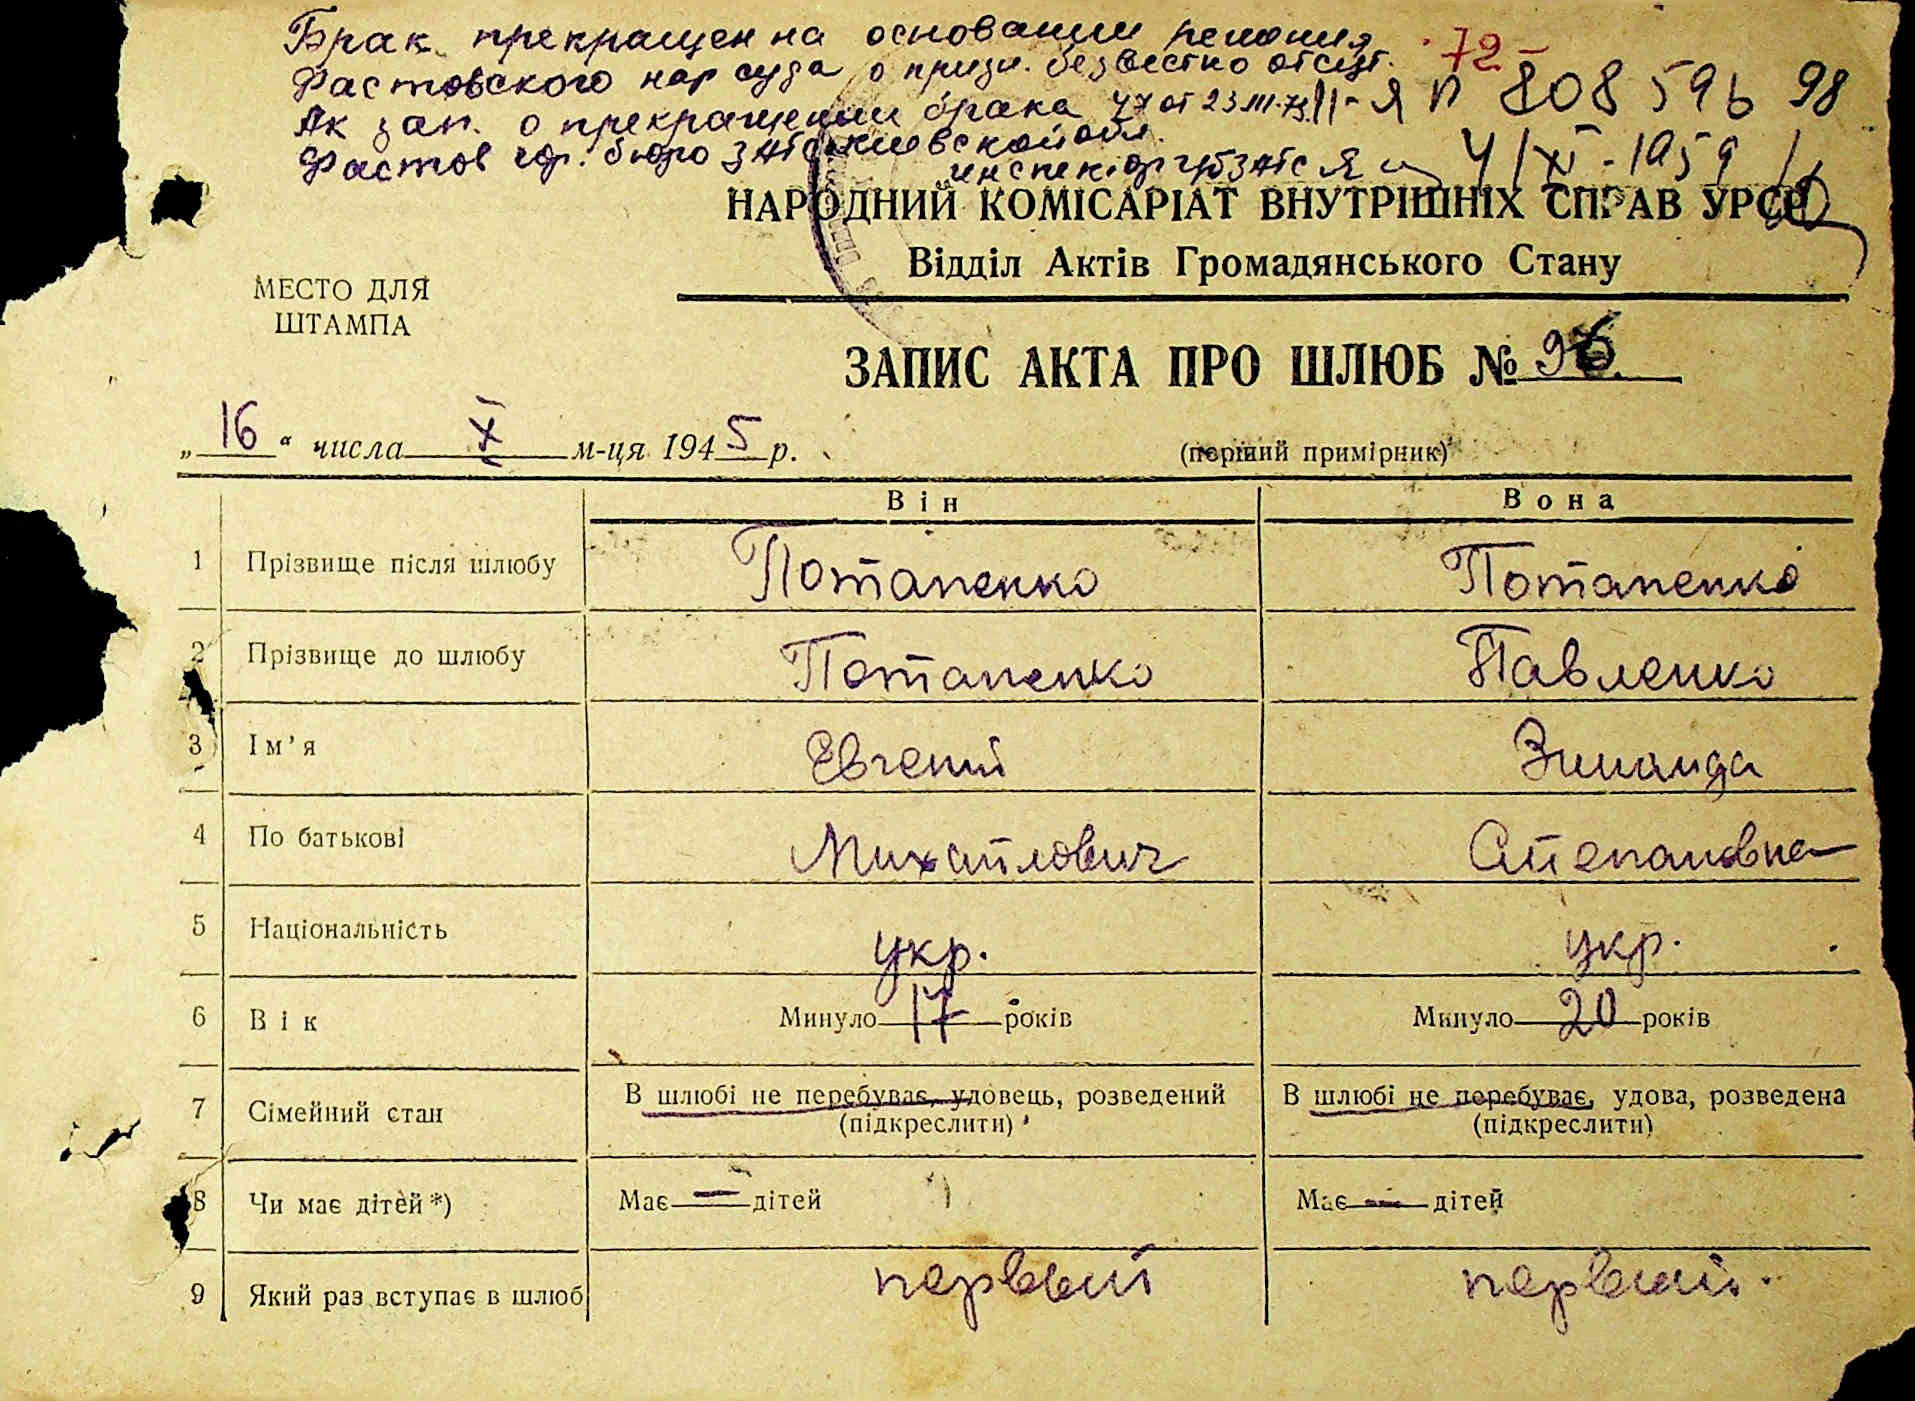 Брак прекращен на основании решения
Фастовского нар суда о призн. безвестно отсут.
72 –
Ак зап. о прекращении брака 47 от 23 III-73
II-Я П 808596 98
Фастов гор. бюро ЗАГС Киевской обл.
инспектор ЗАГС
4/XI-1959
НАРОДНИЙ КОМІСАРІАТ ВНУТРІШНІХ СПРАВ УРСР
Відділ Актів Громадянського Стану
МЕСТО ДЛЯ
ШТАМПА
ЗАПИС АКТА ПРО ШЛЮБ № 96.
„16“ числа X м-ця 1945 р.
(перший примірник)
Він Вона
1 Прізвище після шлюбу Потапенко Потапенко
2 Прізвище до шлюбу Потапенко Павленко
3 Ім’я Евгений Зинаида
4 По батькові Михайлович Степановна
5 Національність укр. укр.
6 Вік Минуло 17 років Минуло 20 років
7 Сімейний стан В шлюбі не перебуває, удовець, розведений В шлюбі не перебуває, удова, розведена
(підкреслити) (підкреслити)
8 Чи має дітей *) Має — дітей Має — дітей
9 Який раз вступає в шлюб первый первый.